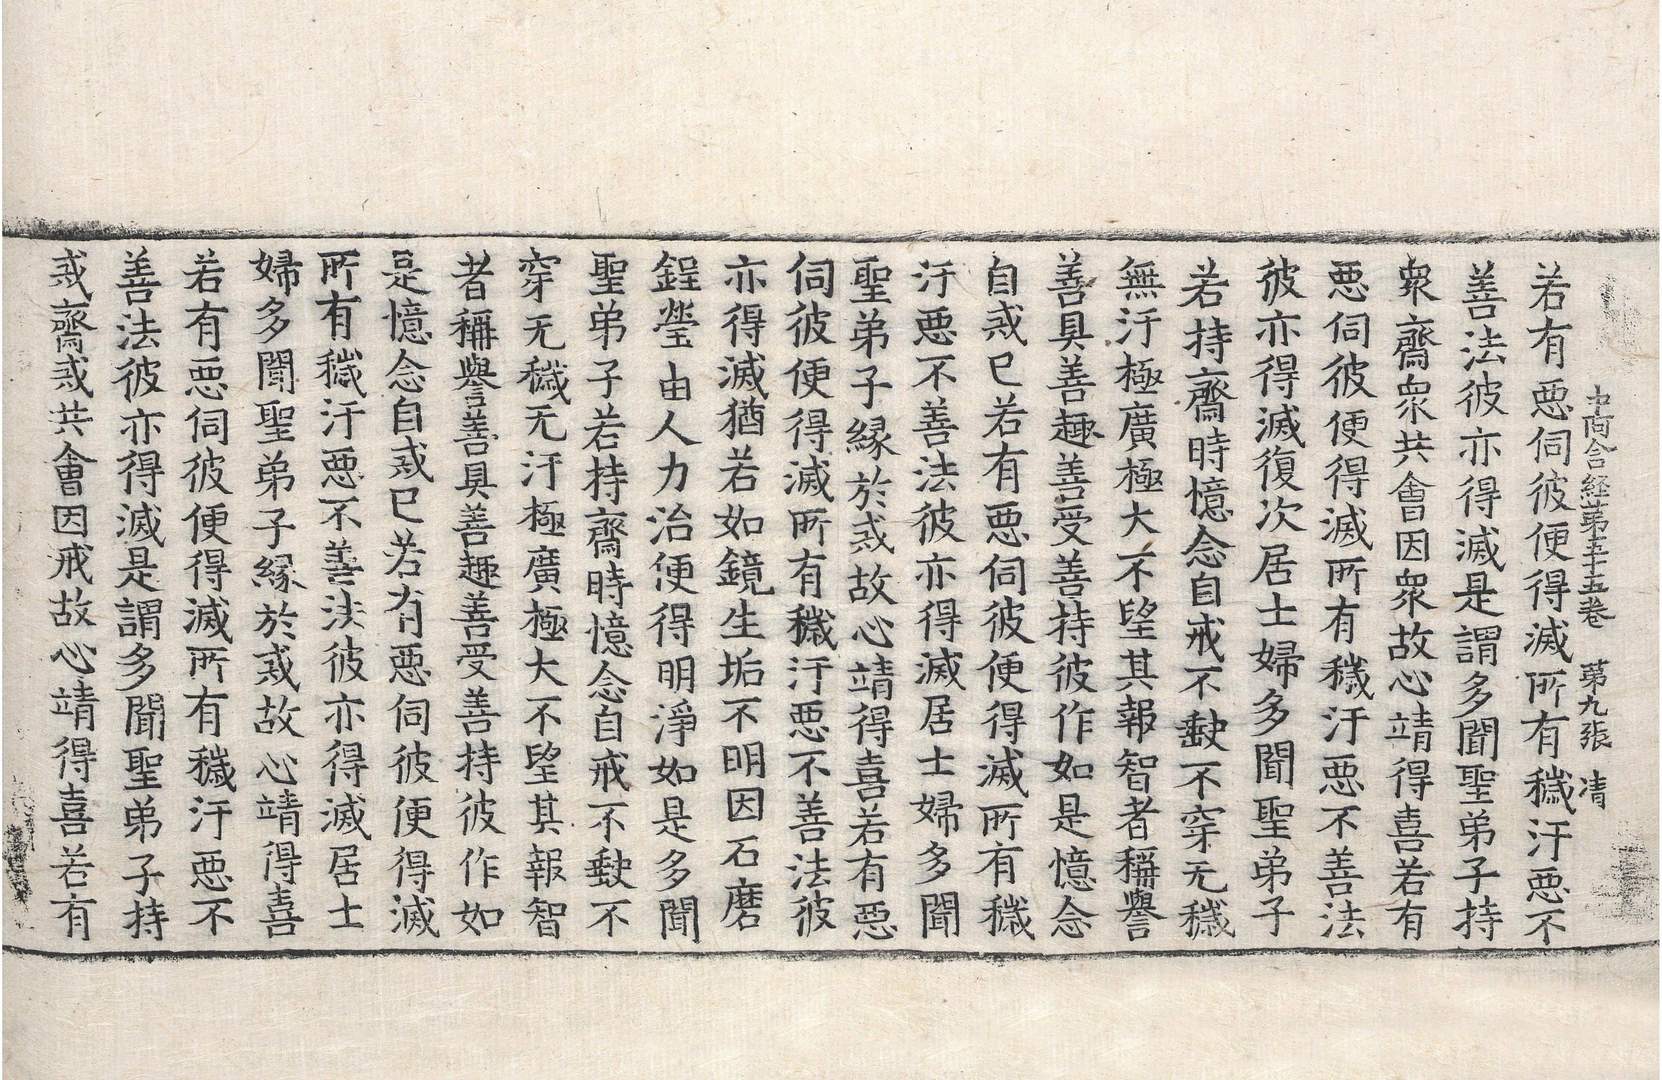 中阿含経第五十五卷 第九張 清
若有惡伺彼便得滅所有穢汙惡不
善法彼亦得滅是謂多聞聖弟子持
衆齋衆共會因衆故心靖得喜若有
惡伺彼便得滅所有穢汙惡不善法
彼亦得滅復次居士婦多聞聖弟子
若持齋時憶念自戒不𡙇不穿无穢
無汙極廣極大不望其報智者稱譽
善具善趣善受善持彼作如是憶念
自戒已若有惡伺彼便得滅所有穢
汙惡不善法彼亦得滅居士婦多聞
聖弟子緣於戒故心靖得喜若有惡
伺彼便得滅所有穢汙惡不善法彼
亦得滅猶若如鏡生垢不明因石磨
鋥瑩由人力治便得明淨如是多聞
聖弟子若持齋時憶念自戒不𡙇不
穿无穢无汙極廣極大不望其報智
者稱譽善具善趣善受善持彼作如
是憶念自戒已若有惡伺彼便得滅
所有穢汙惡不善法彼亦得滅居士
婦多聞聖弟子緣於戒故心靖得喜
若有惡伺彼便得滅所有穢汙惡不
善法彼亦得滅是謂多聞聖弟子持
戒齋戒共會因戒故心靖得喜若有